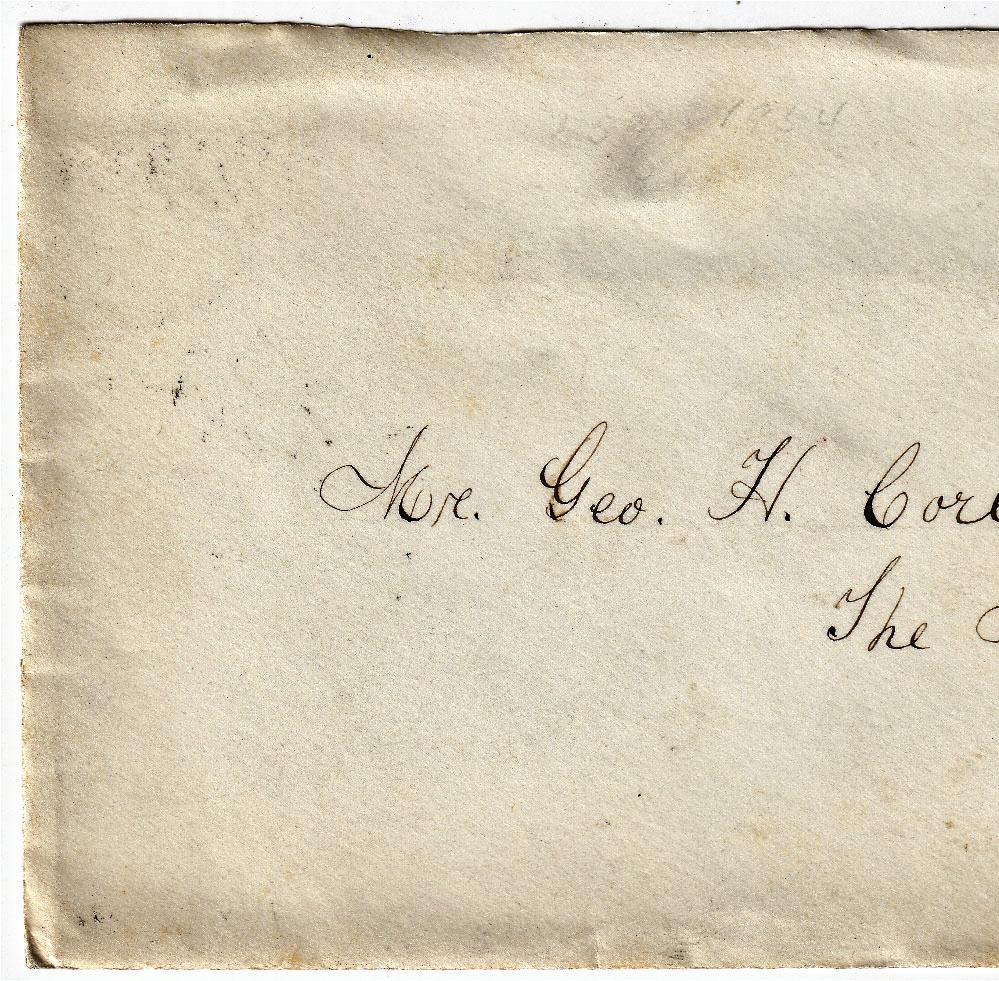 1934
Mr. Geo. H. Core
The